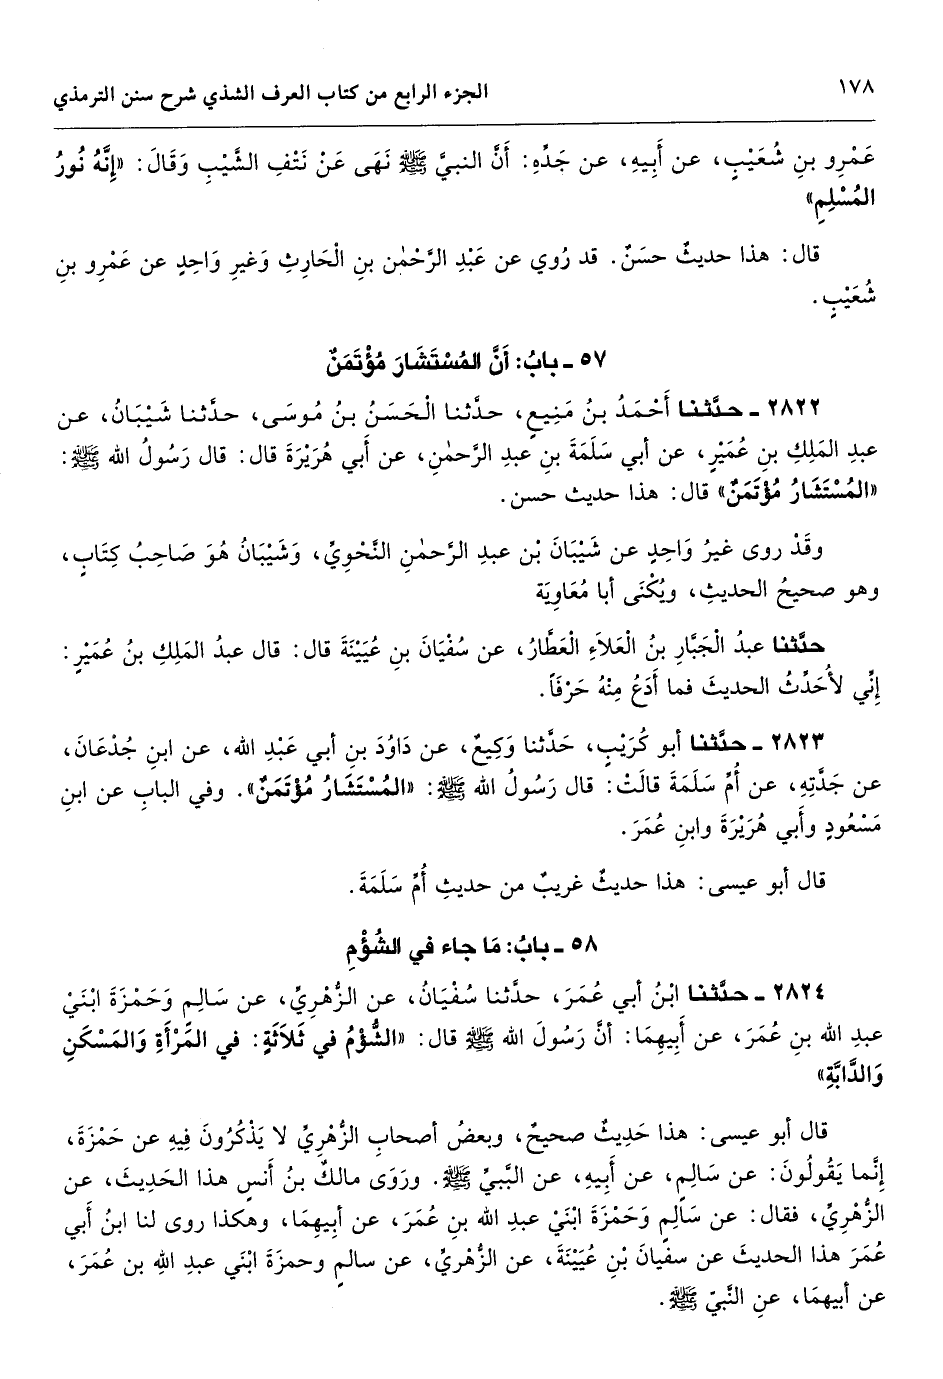 ١٧٨ الجزء الرابع من كتاب العرف الشذي شرح سنن الترمذي
عَمْرِو بنِ شُعَيْبٍ، عن أَبِيهِ، عن جَدِّهِ: أَنَّ النبيَّ ﷺ نَهَى عَنْ نَتْفِ الشَّيْبِ وَقَالَ: «إِنَّهُ نُورُ
المُسْلِمِ»
قال: هذا حديثٌ حسَنٌ. قد رُوي عن عَبْدِ الرَّحْمٰن بنِ الْحَارِثِ وَغَيرِ وَاحِدٍ عن عَمْرِو بنِ
شُعَيْبٍ.
٥٧ ـ بابُ: أَنَّ المُسْتَشَارَ مُؤْتَمَنٌ
٢٨٢٢ ـ حدَّثنا أَحْمَدُ بنُ مَنِيعٍ، حدَّثنا الْحَسَنُ بنُ مُوسَى، حدَّثنا شَيْبَانُ، عن
عبدِ المَلِكِ بنِ عُمَيْرٍ، عن أبي سَلَمَةَ بنِ عبدِ الرَّحمٰنِ، عن أَبي هُرَيْرَةَ قال: قال رَسُولُ الله ﷺ:
«المُسْتَشَارُ مُؤْتَمَنٌ» قال: هذا حديث حسن.
وقَدْ روى غيرُ وَاحِدٍ عن شَيْبَانَ بْن عبدِ الرحمٰنِ النَّحْوِيِّ، وَشَيْبَانُ هُوَ صَاحِبُ كِتَابٍ،
وهو صحيحُ الحديثِ، ويُكْنَى أبا مُعَاوِيَة
حدَّثنا عبدُ الْجَبَّارِ بنُ الْعَلاَءِ الْعَطَّارُ، عن سُفْيَانَ بنِ عُيَيْنَةَ قال: قال عبدُ المَلِكِ بنُ عُمَيْرٍ:
إنِّي لأُحَدِّثُ الحديثَ فما أَدَعُ مِنْهُ حَرْفَاً.
٢٨٢٣ ـ حدَّثنا أبو كُرَيْبٍ، حَدَّثنا وَكِيعٌ، عن دَاوُدَ بنِ أبي عَبْدِ الله، عن ابنِ جُدْعَانَ،
عن جَدَّتِهِ، عن أُمِّ سَلَمَةَ قالَتْ: قال رَسُولُ الله ﷺ: «المُسْتَشَارُ مُؤْتَمَنٌ». وفي البابِ عن ابنِ
مَسْعُودٍ وأَبي هُرَيْرَةَ وابنِ عُمَرَ.
قال أبو عيسى: هذا حديثٌ غريبٌ من حديثِ أُمِّ سَلَمَةَ.
٥٨ ـ بابُ: مَا جاء في الشُؤْمِ
٢٨٢٤ ـ حدَّثنا ابْنُ أبي عُمَرَ، حدَّثنا سُفْيَانُ، عن الزُّهْرِيِّ، عن سَالِمٍ وَحَمْزَةَ ابْنَيْ
عبدِ الله بنِ عُمَرَ، عن أَبِيهِمَا: أنَّ رَسُولَ الله ﷺ قال: «الشُّؤْمُ في ثَلاَثَةٍ: في المَرْأَةِ وَالمَسْكَنِ
وَالدَّابَّةِ»
قال أبو عيسى: هذا حَدِيثٌ صحيحٌ، وبعضُ أصحابِ الزُّهْرِيِّ لا يَذْكُرُونَ فِيهِ عن حَمْزَةَ،
إِنَّما يَقُولُونَ: عن سَالِمٍ، عن أَبِيهِ، عن النَّبيِّ ﷺ. ورَوَى مالكُ بنُ أنسٍ هذا الحَدِيثَ، عن
الزُّهْرِيِّ، فقال: عن سَالِمٍ وَحَمْزَةَ ابْنَيْ عبدِ الله بنِ عُمَرَ، عن أبيهِمَا، وهكذا روى لنا ابنُ أَبي
عُمَرَ هذا الحديثَ عن سفيانَ بْنِ عُيَيْنَةَ، عن الزُّهْريِّ، عن سالمٍ وحمزةَ ابْنَي عبدِ اللهِ بن عُمَرَ،
عن أبيهمَا، عنِ النَّبيّ ﷺ.